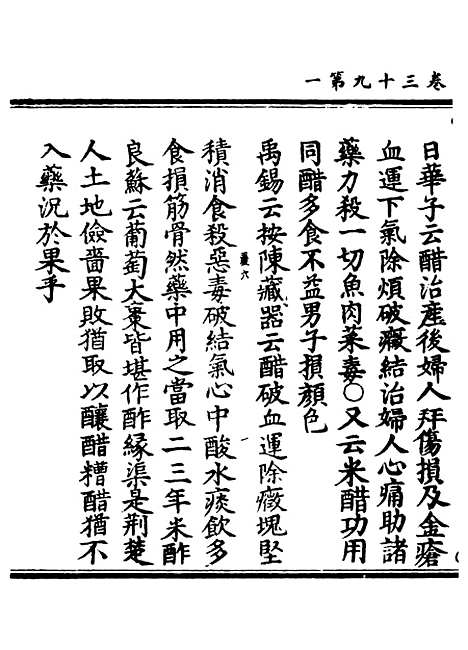 卷三十九第一
日華子云醋治產後婦人并傷損及金瘡
血運下氣除煩破癥結治婦人心痛助諸
藥力殺一切魚肉菜毒○又云米醋功用
同醋多食不益男子損顏色
禹錫云按陳藏器云醋破血運除癥塊堅
積消食殺惡毒破結氣心中酸水痰飲多
食損筋骨然藥中用之當取二三年米酢
良蘇云葡萄大棗皆堪作酢緣渠是荊楚
人土地儉嗇果敗猶取以釀醋糟醋猶不
入藥況於果乎